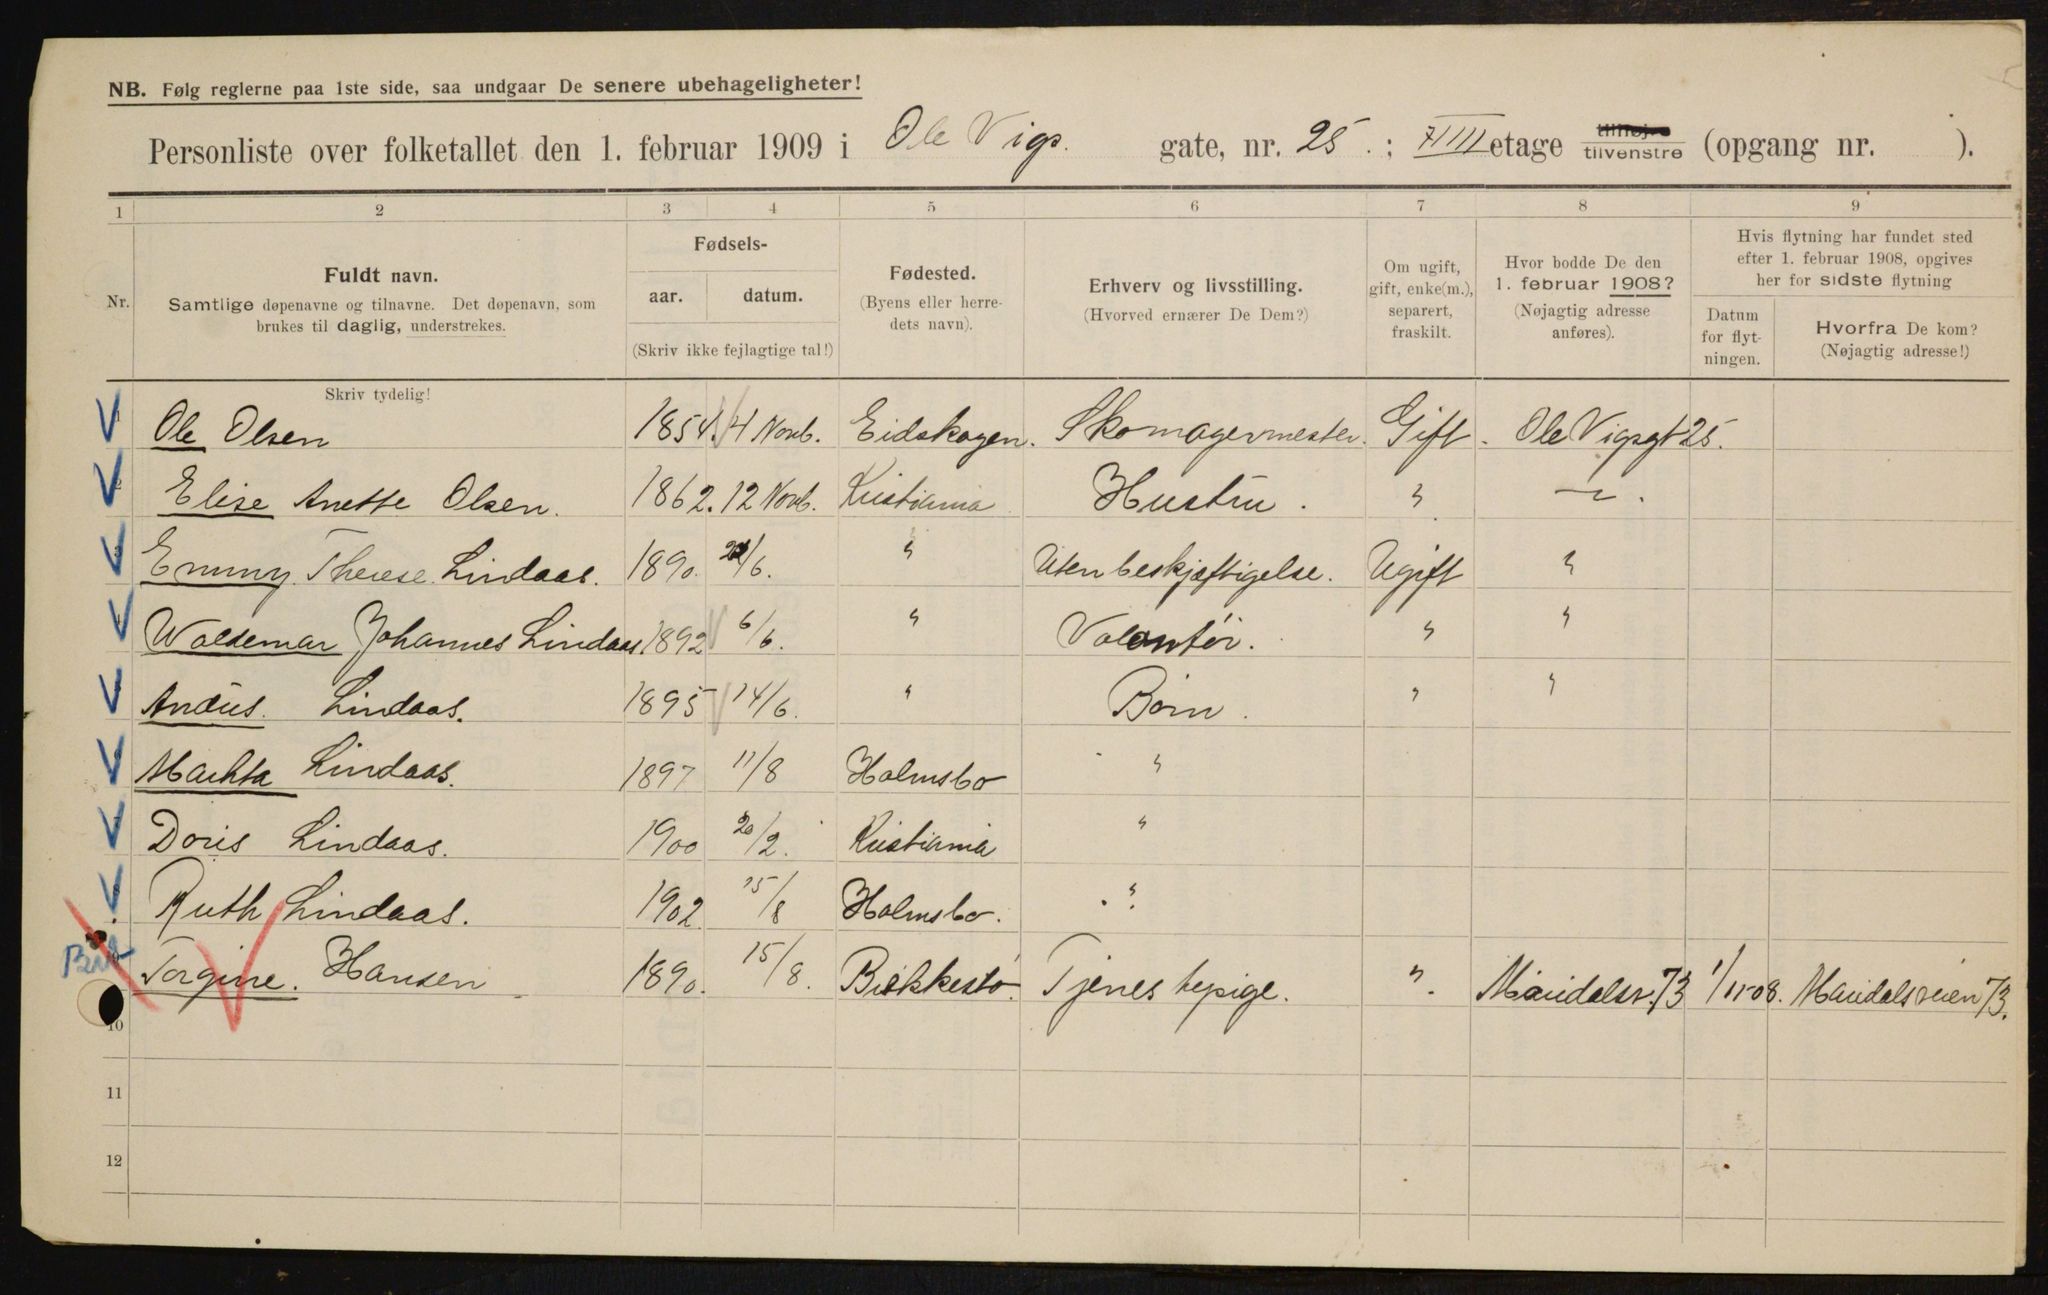 NB. Følg reglerne paa 1ste side, saa undgaar De senere ubehageligheter!
Personliste over folketallet den 1. februar 1909 i Ole Vigs. gate, nr. 25. ; etage tilhøjre tilvenstre (opgang nr. ).
1 2 3 4 5 6 7 8 9
Nr.
Fuldt navn.
Samtlige døpenavne og tilnavne. Det døpenavn, som
brukes til daglig, understrekes.
Skriv tydelig!
Fødsels-
aar. datum.
(Skriv ikke fejlagtige tal!)
Fødested.
(Byens eller herre-
dets navn).
Erhverv og livsstilling.
(Hvorved ernærer De Dem?)
Om ugift,
gift, enke(m.),
separert,
fraskilt.
Hvor bodde De den
1. februar 1908?
(Nøjagtig adresse
anføres).
Hvis flytning har fundet sted
efter 1. februar 1908, opgives
her for sidste flytning
Datum
for flyt-
ningen.
Hvorfra De kom?
(Nøjagtig adresse!)
Ole Olsen 1854. 4 Novb. Eidskogen. Skomagermester. Gift. Ole Vigsgt 25.
Elise Anette Olsen. 1862. 12 Novb. Kristiania Hustru. "
Emmy Therese Lindaas. 1890. /6. " Uten beskjæftigelse. Ugift "
Waldemar Johannes Lindaas. 1892 6/6. " Volontør. " "
Lindaas. 1895 14/6. " Børn. " "
Lindaas. 1897 11/8 Holmsbo "
Doris Lindaas. 1900 20/2. Kristiania "
Ruth Lindaas. 1902. 15/8 Holmsbo. "
Torgine. Hansen 1890. 15/8. Tjenestepige. " Maridalsv. 73 1/11-08. Maridalsveien 73.
10
11
12